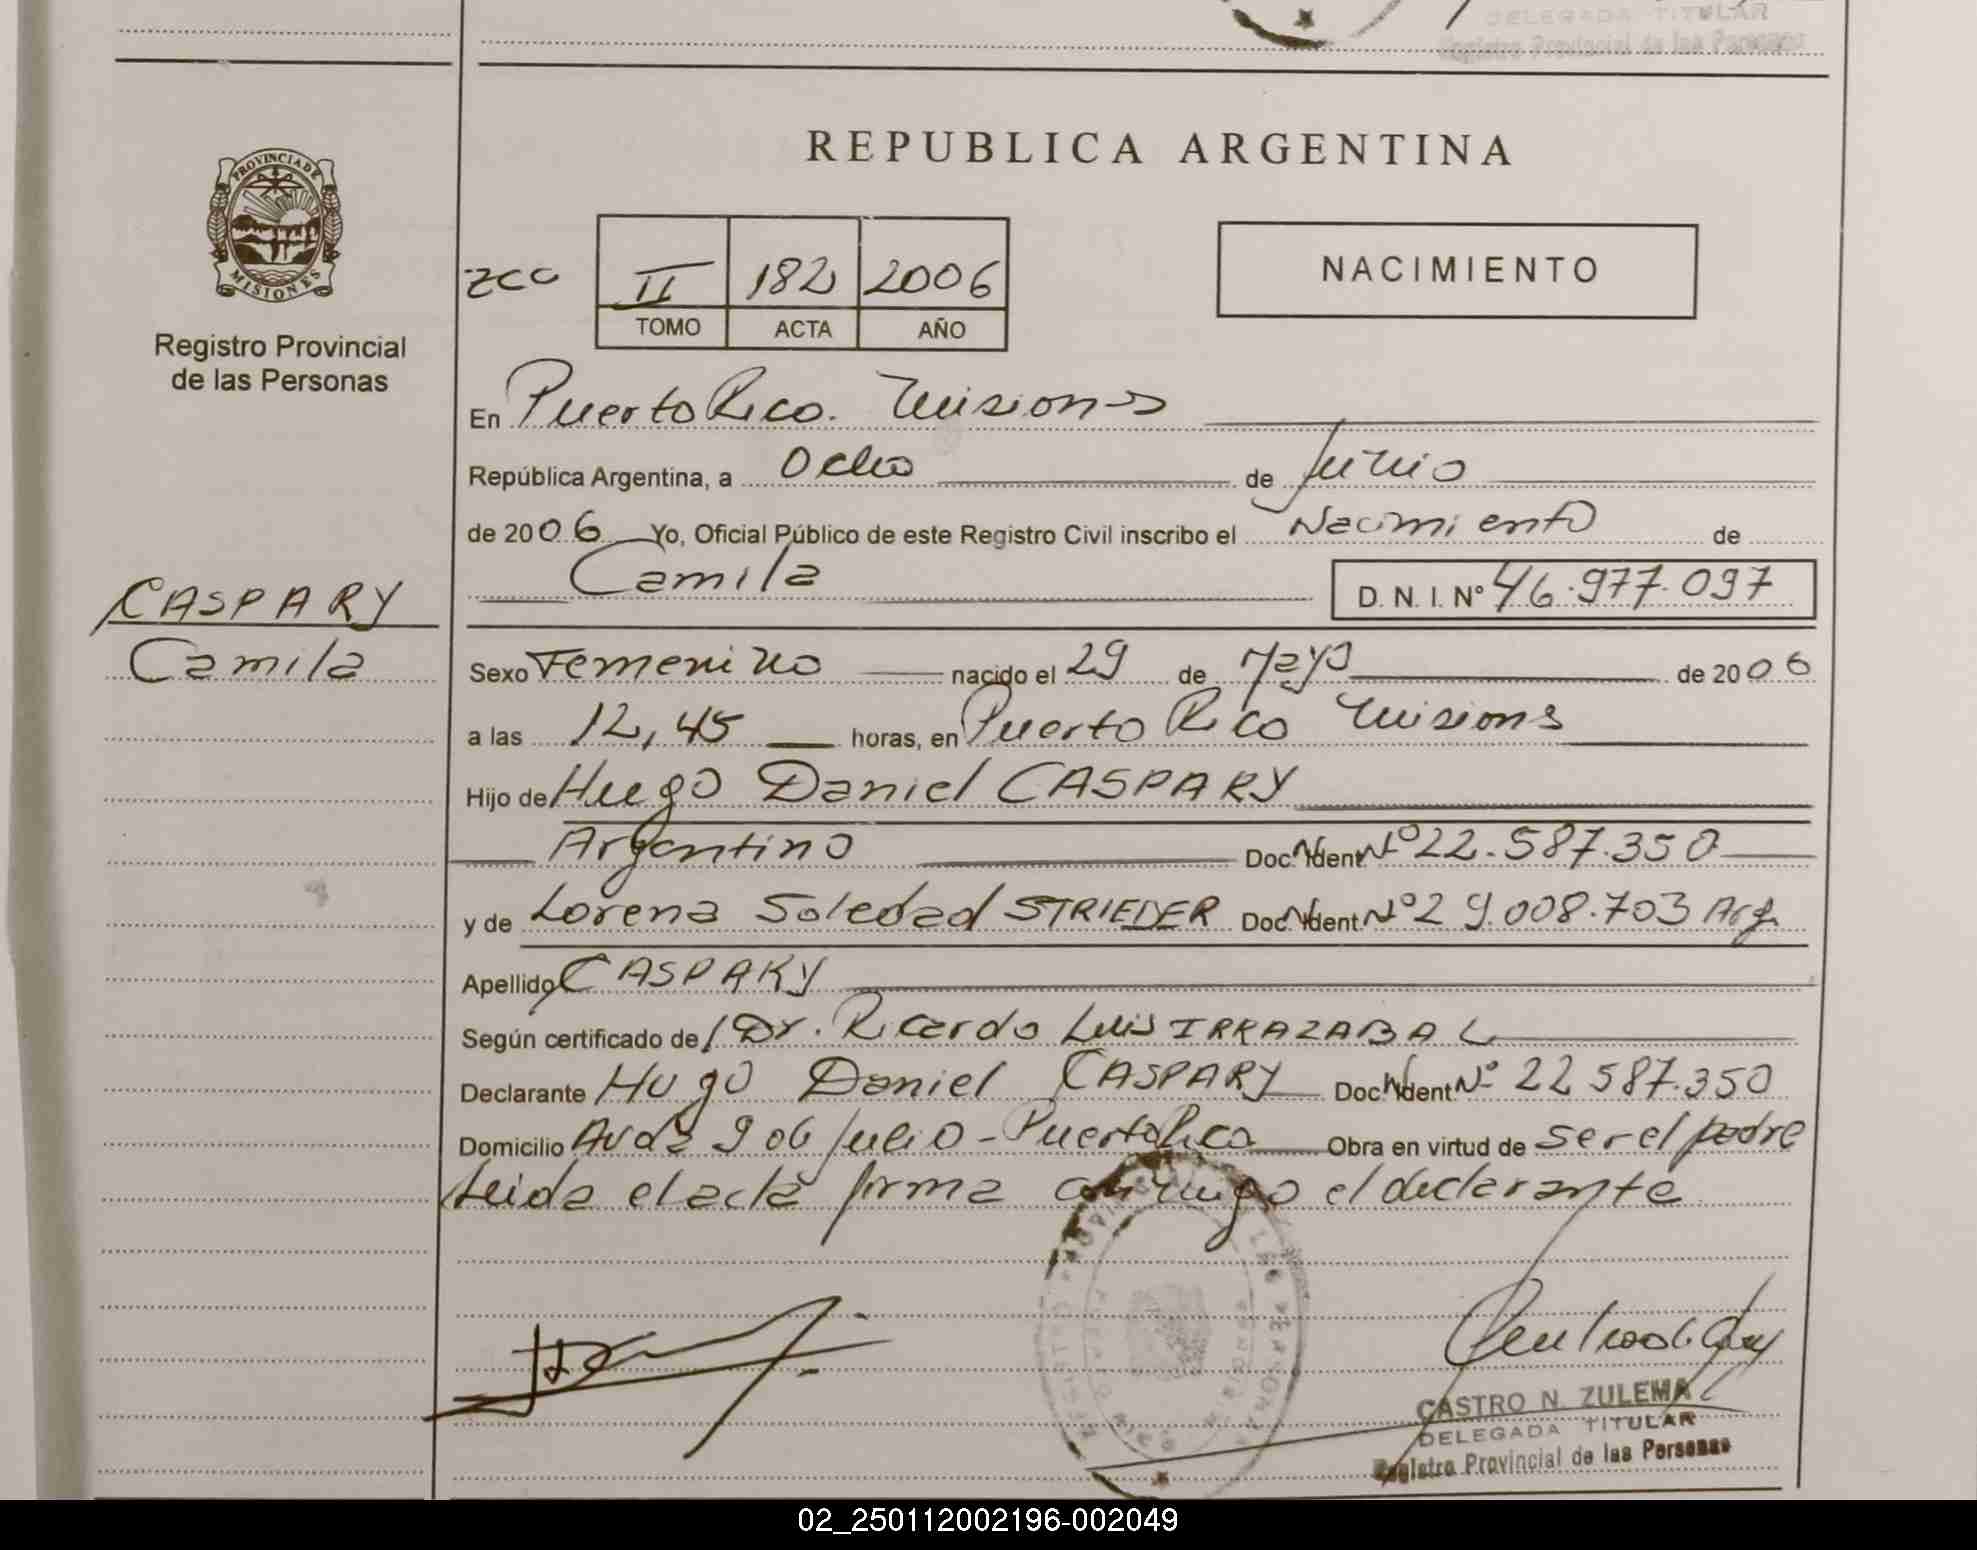 DELEGADA TITULAR
Registro Provincial de las Personas
REPUBLICA ARGENTINA
PROVINCIA DE
MISIONES
Registro Provincial
de las Personas
II 182 2006
TOMO ACTA AÑO
NACIMIENTO
En Puerto Rico. Misiones
República Argentina, a Ocho de Junio
de 2006 Yo, Oficial Público de este Registro Civil inscribo el Nacimiento de
Camila D. N. I. Nº 46.977.097
CASPARY
Camila
Sexo Femenino nacido el 29 de Mayo de 2006
a las 12,45 horas, en Puerto Rico Misiones
Hijo de Hugo Daniel CASPARY
Argentino Doc. Ident Nº 22.587.350
y de Lorena Soledad STRIEDER Doc. Ident. Nº 29.008.703 Arg.
Apellido CASPARY
Según certificado de Dr. Ricardo Luis IRRAZABAL
Declarante Hugo Daniel CASPARY Doc. Ident Nº 22 587.350
Domicilio Avda 9 de Julio - Puerto Rico Obra en virtud de ser el padre
Leida el acta firma conmigo el declarante
CASTRO N. ZULEMA
DELEGADA TITULAR
Registro Provincial de las Personas
02_250112002196-002049